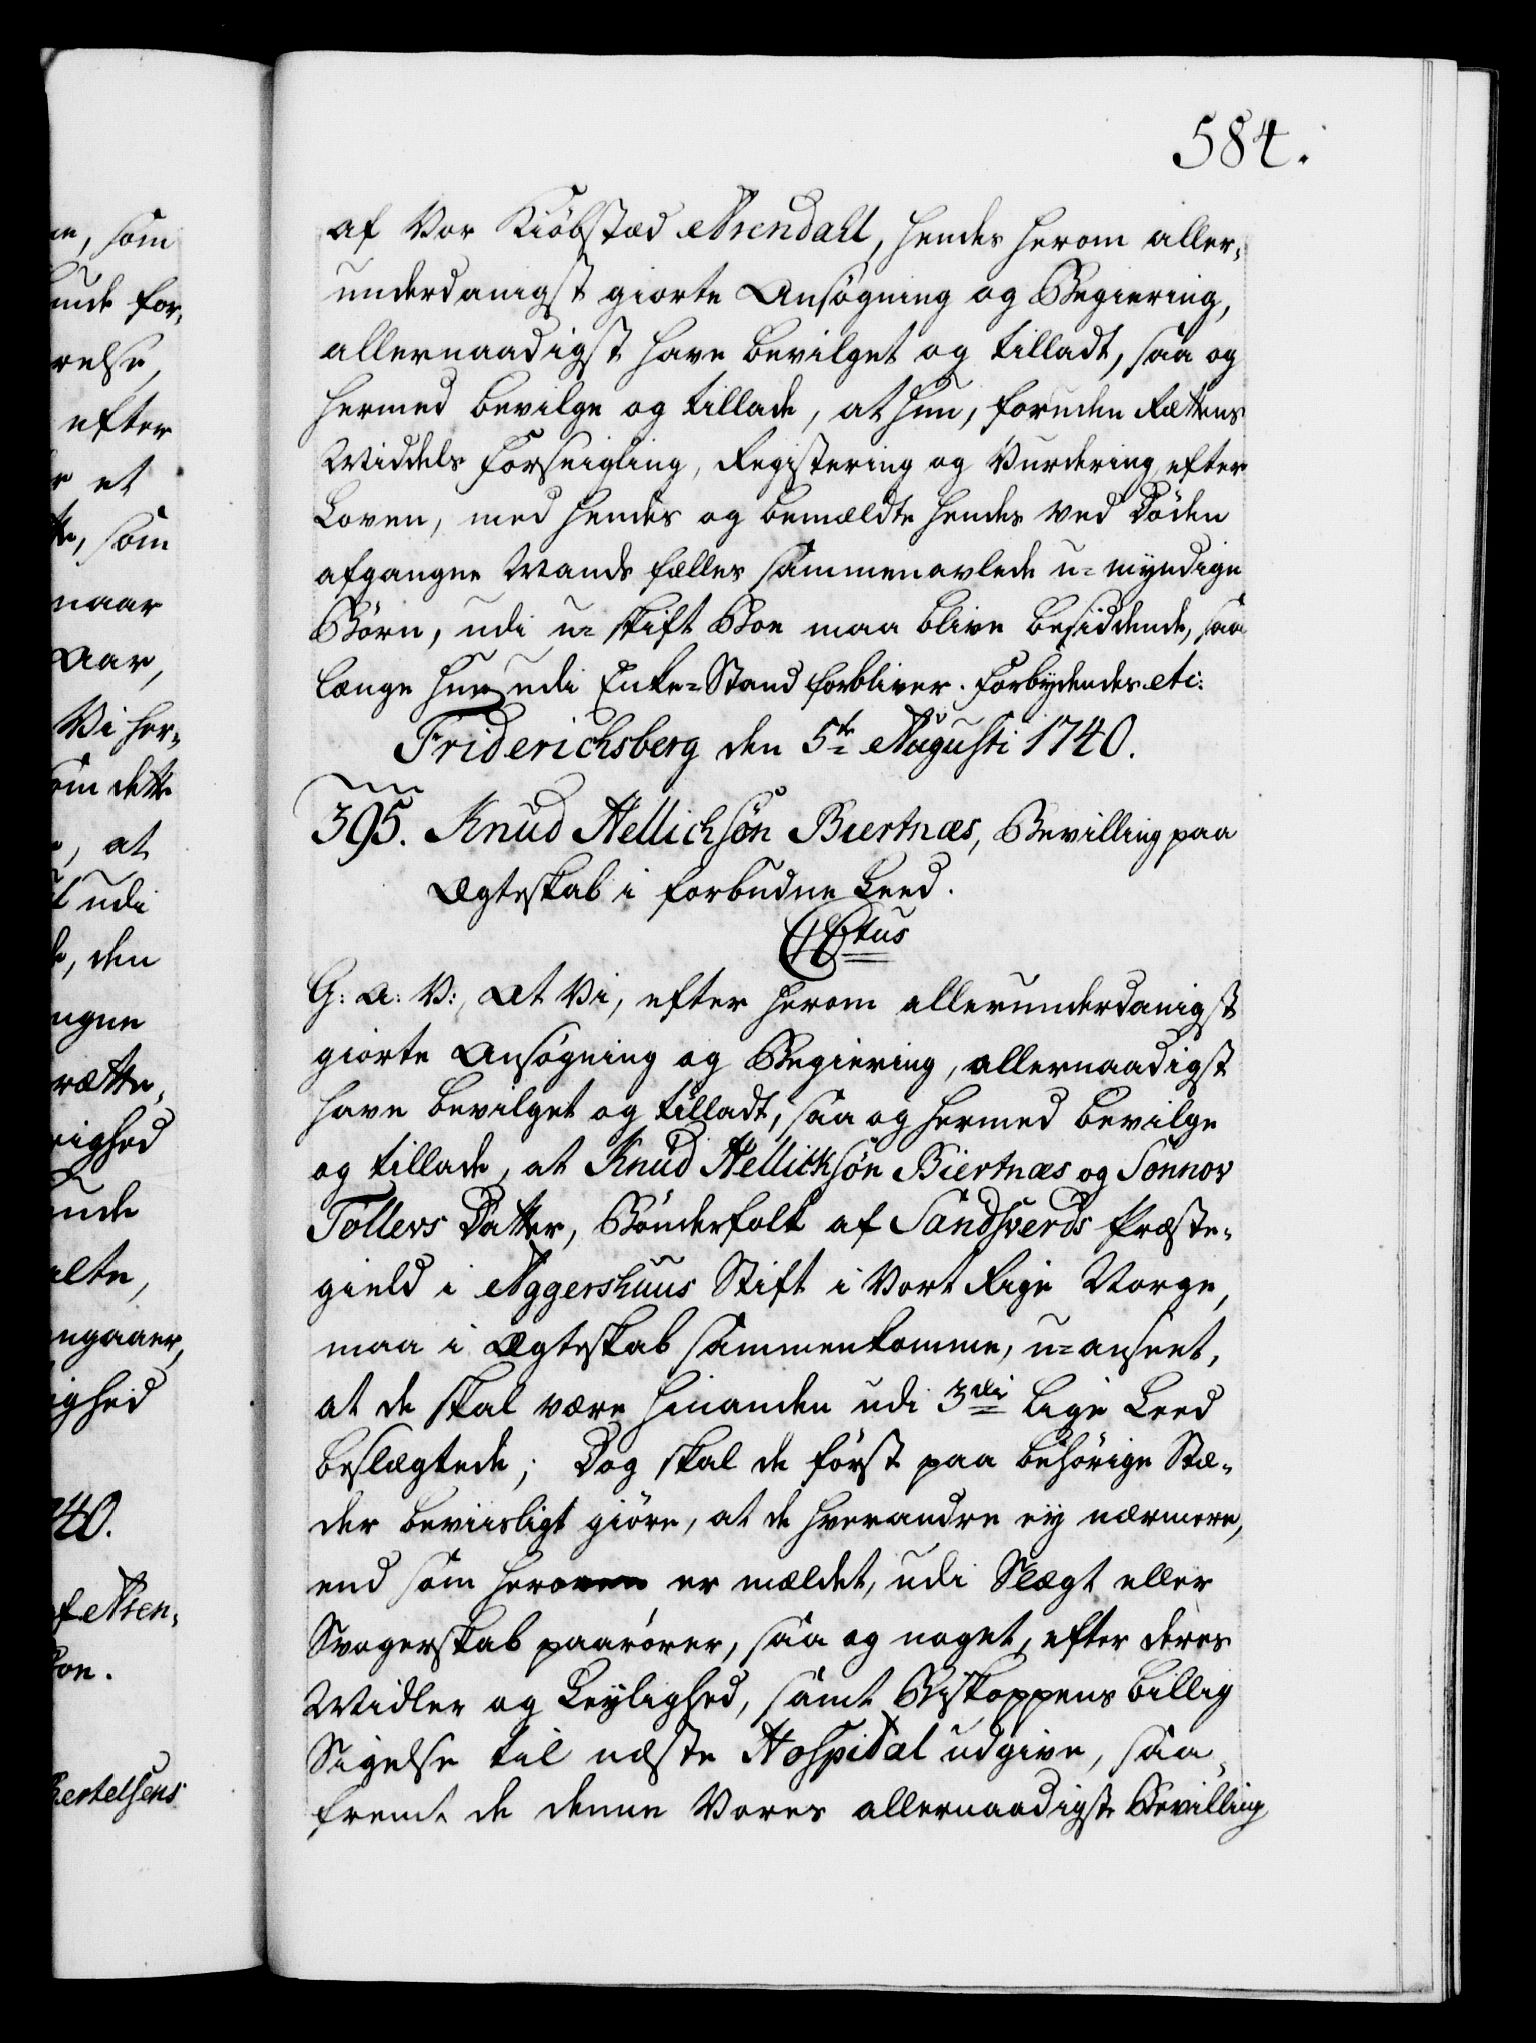 584.
af Vor Kiöbstæd Arendahl, hendes herom aller-
underdanigst giorte Ansögning og Begiering,
allernaadigst have bevilget og tilladt, saa og
hermed bevilge og tillade, at hun, foruden Rættens
Middels Forseigling, Registering og Vurdering efter
Loven, med hendes og bemældte hendes ved Döden
afgangne Mands fælles sammenavlede u-myndige
Börn, udi u-skift Boe maa blive besiddende, saa
længe hun udi Enke-Stand forbliver. Forbydendes etc:
Friderichsberg den 5te Augusti 1740.
395. Knud Hellichsön Biertnæs, Bevilling paa
Ægteskab i forbudne Leed.
C 6tus
G: A: V:, At Vi, efter herom allerunderdanigst
giorte Ansögning og Begiering, allernaadigst
have bevilget og tilladt, saa og hermed bevilge
og tillade, at Knud Hellichsön Biertnæs og Sönnov
Tollevs Datter, Bönderfolk af Sandsverds Præste-
gield i Aggershuus Stift i Vort Rige Norge,
maa i Ægteskab sammenkomme, u-anseet,
at de skal være hinanden udi 3die lige Leed
beslægtede; Dog skal de först paa behörige Stæ-
der beviisligt giöre, at de hverandre ey nærmere,
end som heroven er mældet, udi Slægt eller
Svogerskab paarörer, saa og noget, efter deres
Midler og Leylighed, samt Biskoppens billig
Sigelse til næste Hospital udgive, saa-
fremt de denne Vores allernaadigste Bevilling
som
for-
relse,
efter
et
som
naar
Aar,
Vi her-
om dette
, at
udi
, den
ngne
rætte-
righed
ende
alte,
ngaaer,
ighed
740.
af Aren-
Boe.
Bertelsens